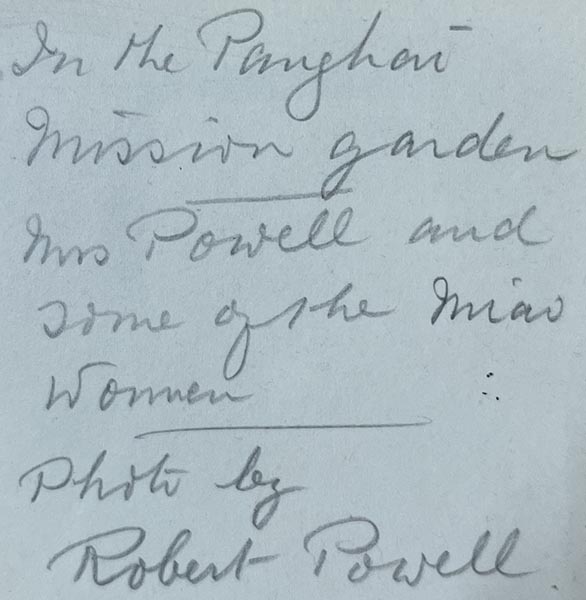 In the Panghai
Mission garden
Mrs Powell and
some of the Miao
Women
Photo by
Robert Powell